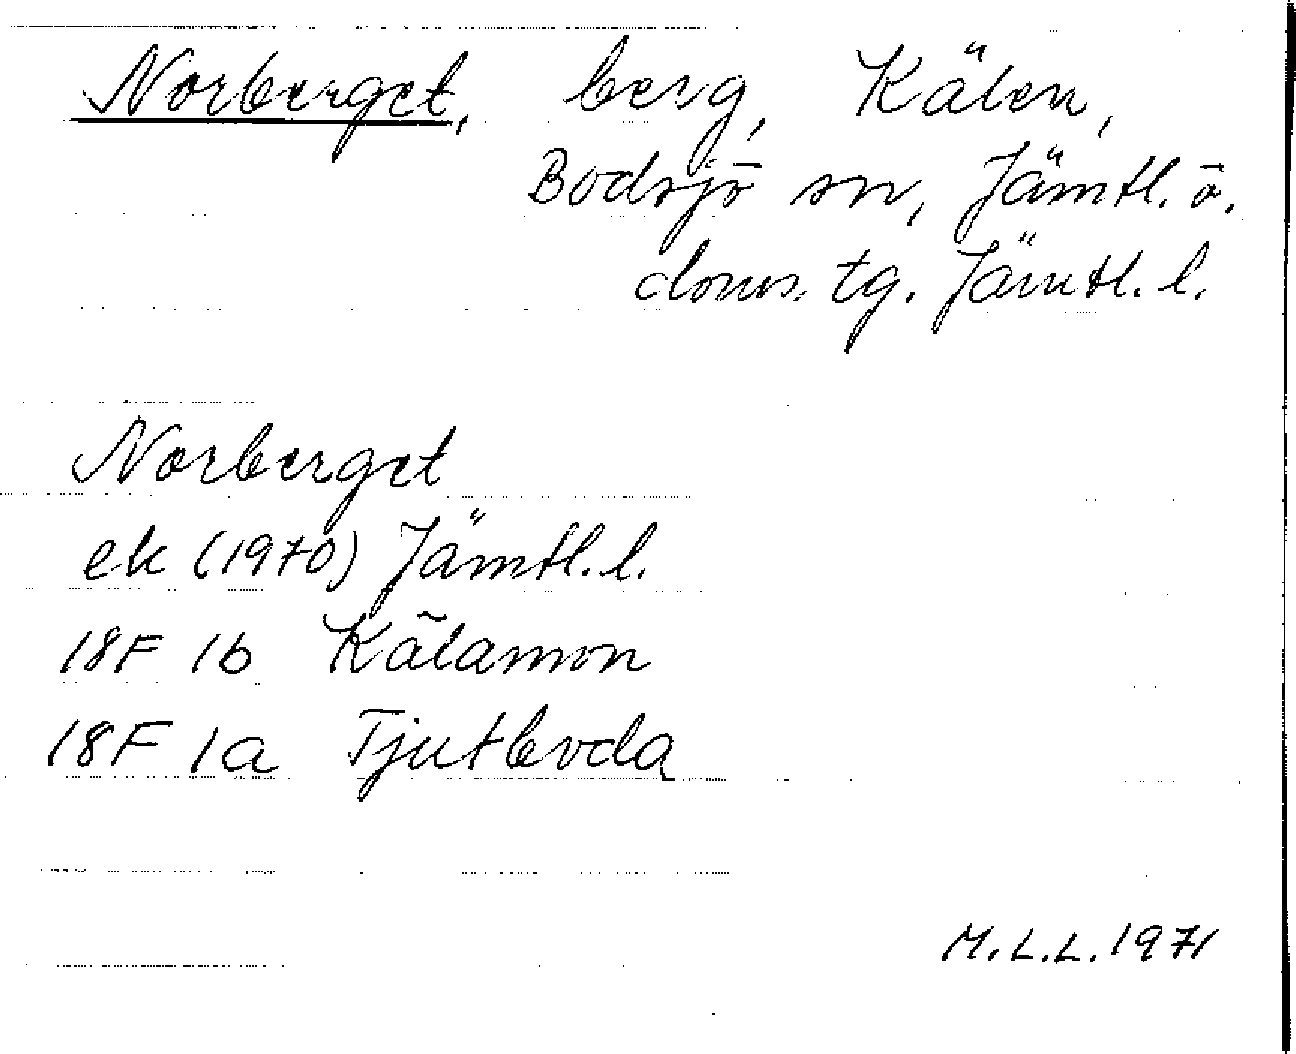 Norberget, berg, Kälen,
Bodsjö sn, Jämtl. ö.
doms. tg. Jämtl. l.
Norberget
ek (1970) Jämtl. l.
18F 1b Kälamon
18F 1a Tjutboda
M.L.L. 1971